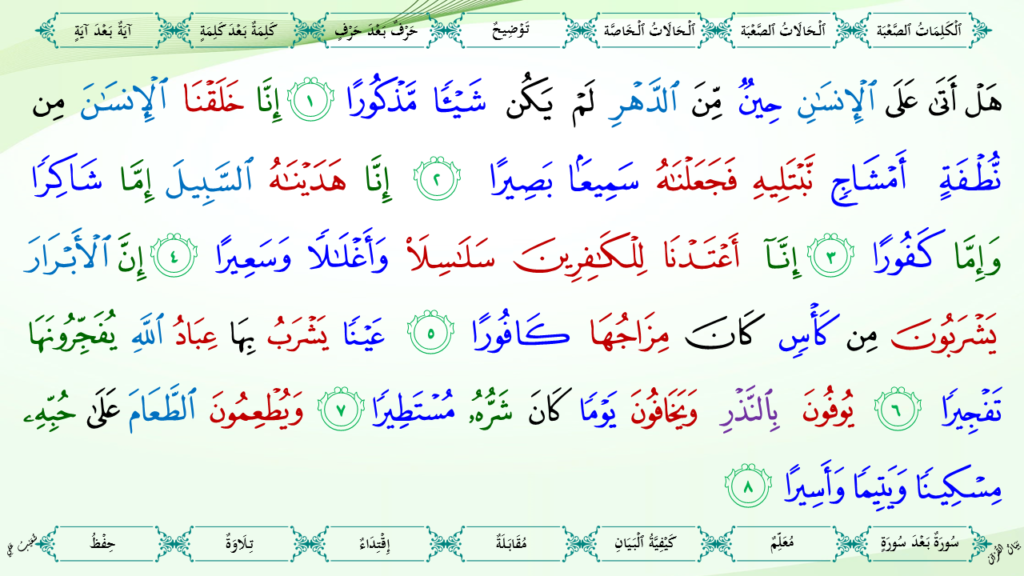 اَلْكَلِمَاتُ الصَّعْبَة اَلْحَالَاتُ الصَّعْبَة اَلْحَالَاتُ الْخَاصَّة تَوْضِيحٌ حَرْفٌ بَعْدَ حَرْفٍ كَلِمَةٌ بَعْدَ كَلِمَةٍ آيَةٌ بَعْدَ آيَةٍ
هَلْ أَتَىٰ عَلَى ٱلْإِنسَـٰنِ حِينٌ مِّنَ ٱلدَّهْرِ لَمْ يَكُن شَيْـًٔا مَّذْكُورًا ١ إِنَّا خَلَقْنَا ٱلْإِنسَـٰنَ مِن
نُّطْفَةٍ أَمْشَاجٍ نَّبْتَلِيهِ فَجَعَلْنَـٰهُ سَمِيعًۢا بَصِيرًا ٢ إِنَّا هَدَيْنَـٰهُ ٱلسَّبِيلَ إِمَّا شَاكِرًا
وَإِمَّا كَفُورًا ٣ إِنَّآ أَعْتَدْنَا لِلْكَـٰفِرِينَ سَلَـٰسِلَا۟ وَأَغْلَـٰلًا وَسَعِيرًا ٤ إِنَّ ٱلْأَبْرَارَ
يَشْرَبُونَ مِن كَأْسٍ كَانَ مِزَاجُهَا كَافُورًا ٥ عَيْنًا يَشْرَبُ بِهَا عِبَادُ ٱللَّهِ يُفَجِّرُونَهَا
تَفْجِيرًا ٦ يُوفُونَ بِٱلنَّذْرِ وَيَخَافُونَ يَوْمًا كَانَ شَرُّهُۥ مُسْتَطِيرًا ٧ وَيُطْعِمُونَ ٱلطَّعَامَ عَلَىٰ حُبِّهِۦ
مِسْكِينًا وَيَتِيمًا وَأَسِيرًا ٨
سُورَةٌ بَعْدَ سُورَةٍ مُعَلِّمٌ كَيْفِيَّةُ الْبَيَانِ مُقَابَلَةٌ إِقْتِدَاءٌ تِلَاوَةٌ حِفْظٌ
بَيَانُ القُرْآن